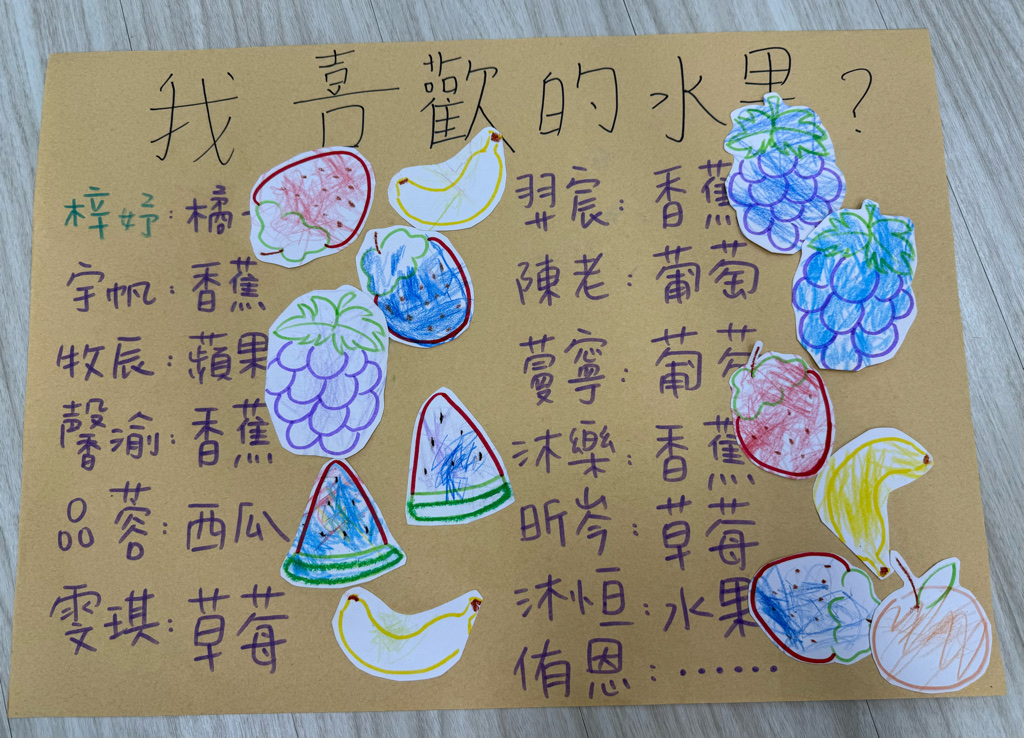 我喜歡的水果?
梓妤:橘
宇帆:香蕉
牧辰:蘋果
馨渝:香蕉
品蓉:西瓜
雯琪:草莓
羿宸:香蕉
陳老:葡萄
蔓寧:葡萄
沐樂:香蕉
昕岑:草莓
沐恒:水果
侑恩:......